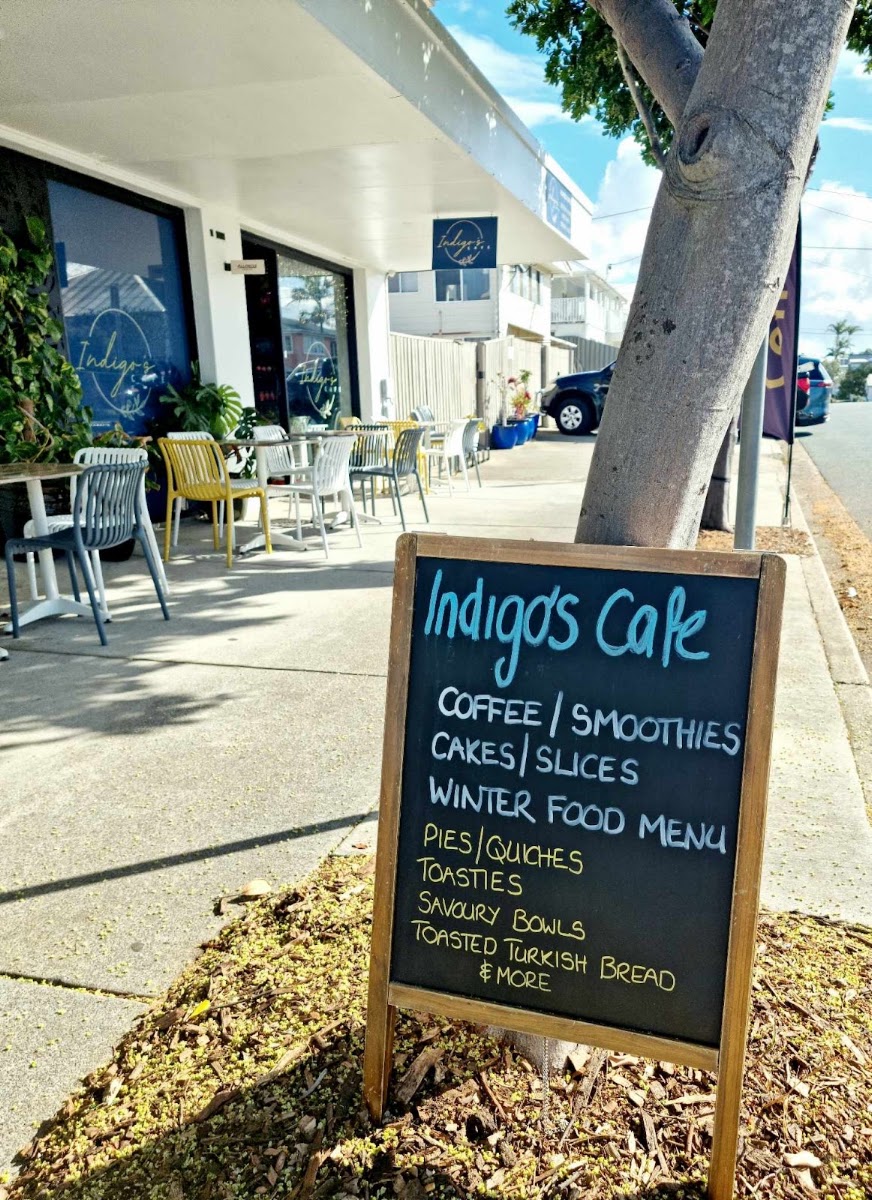 Indigo's
CAFE
Indigo's
Indigo's
Indigo's Cafe
COFFEE/SMOOTHIES
CAKES/SLICES
WINTER FOOD MENU
PIES/QUICHES
TOASTIES
SAVOURY BOWLS
TOASTED TURKISH BREAD
& MORE